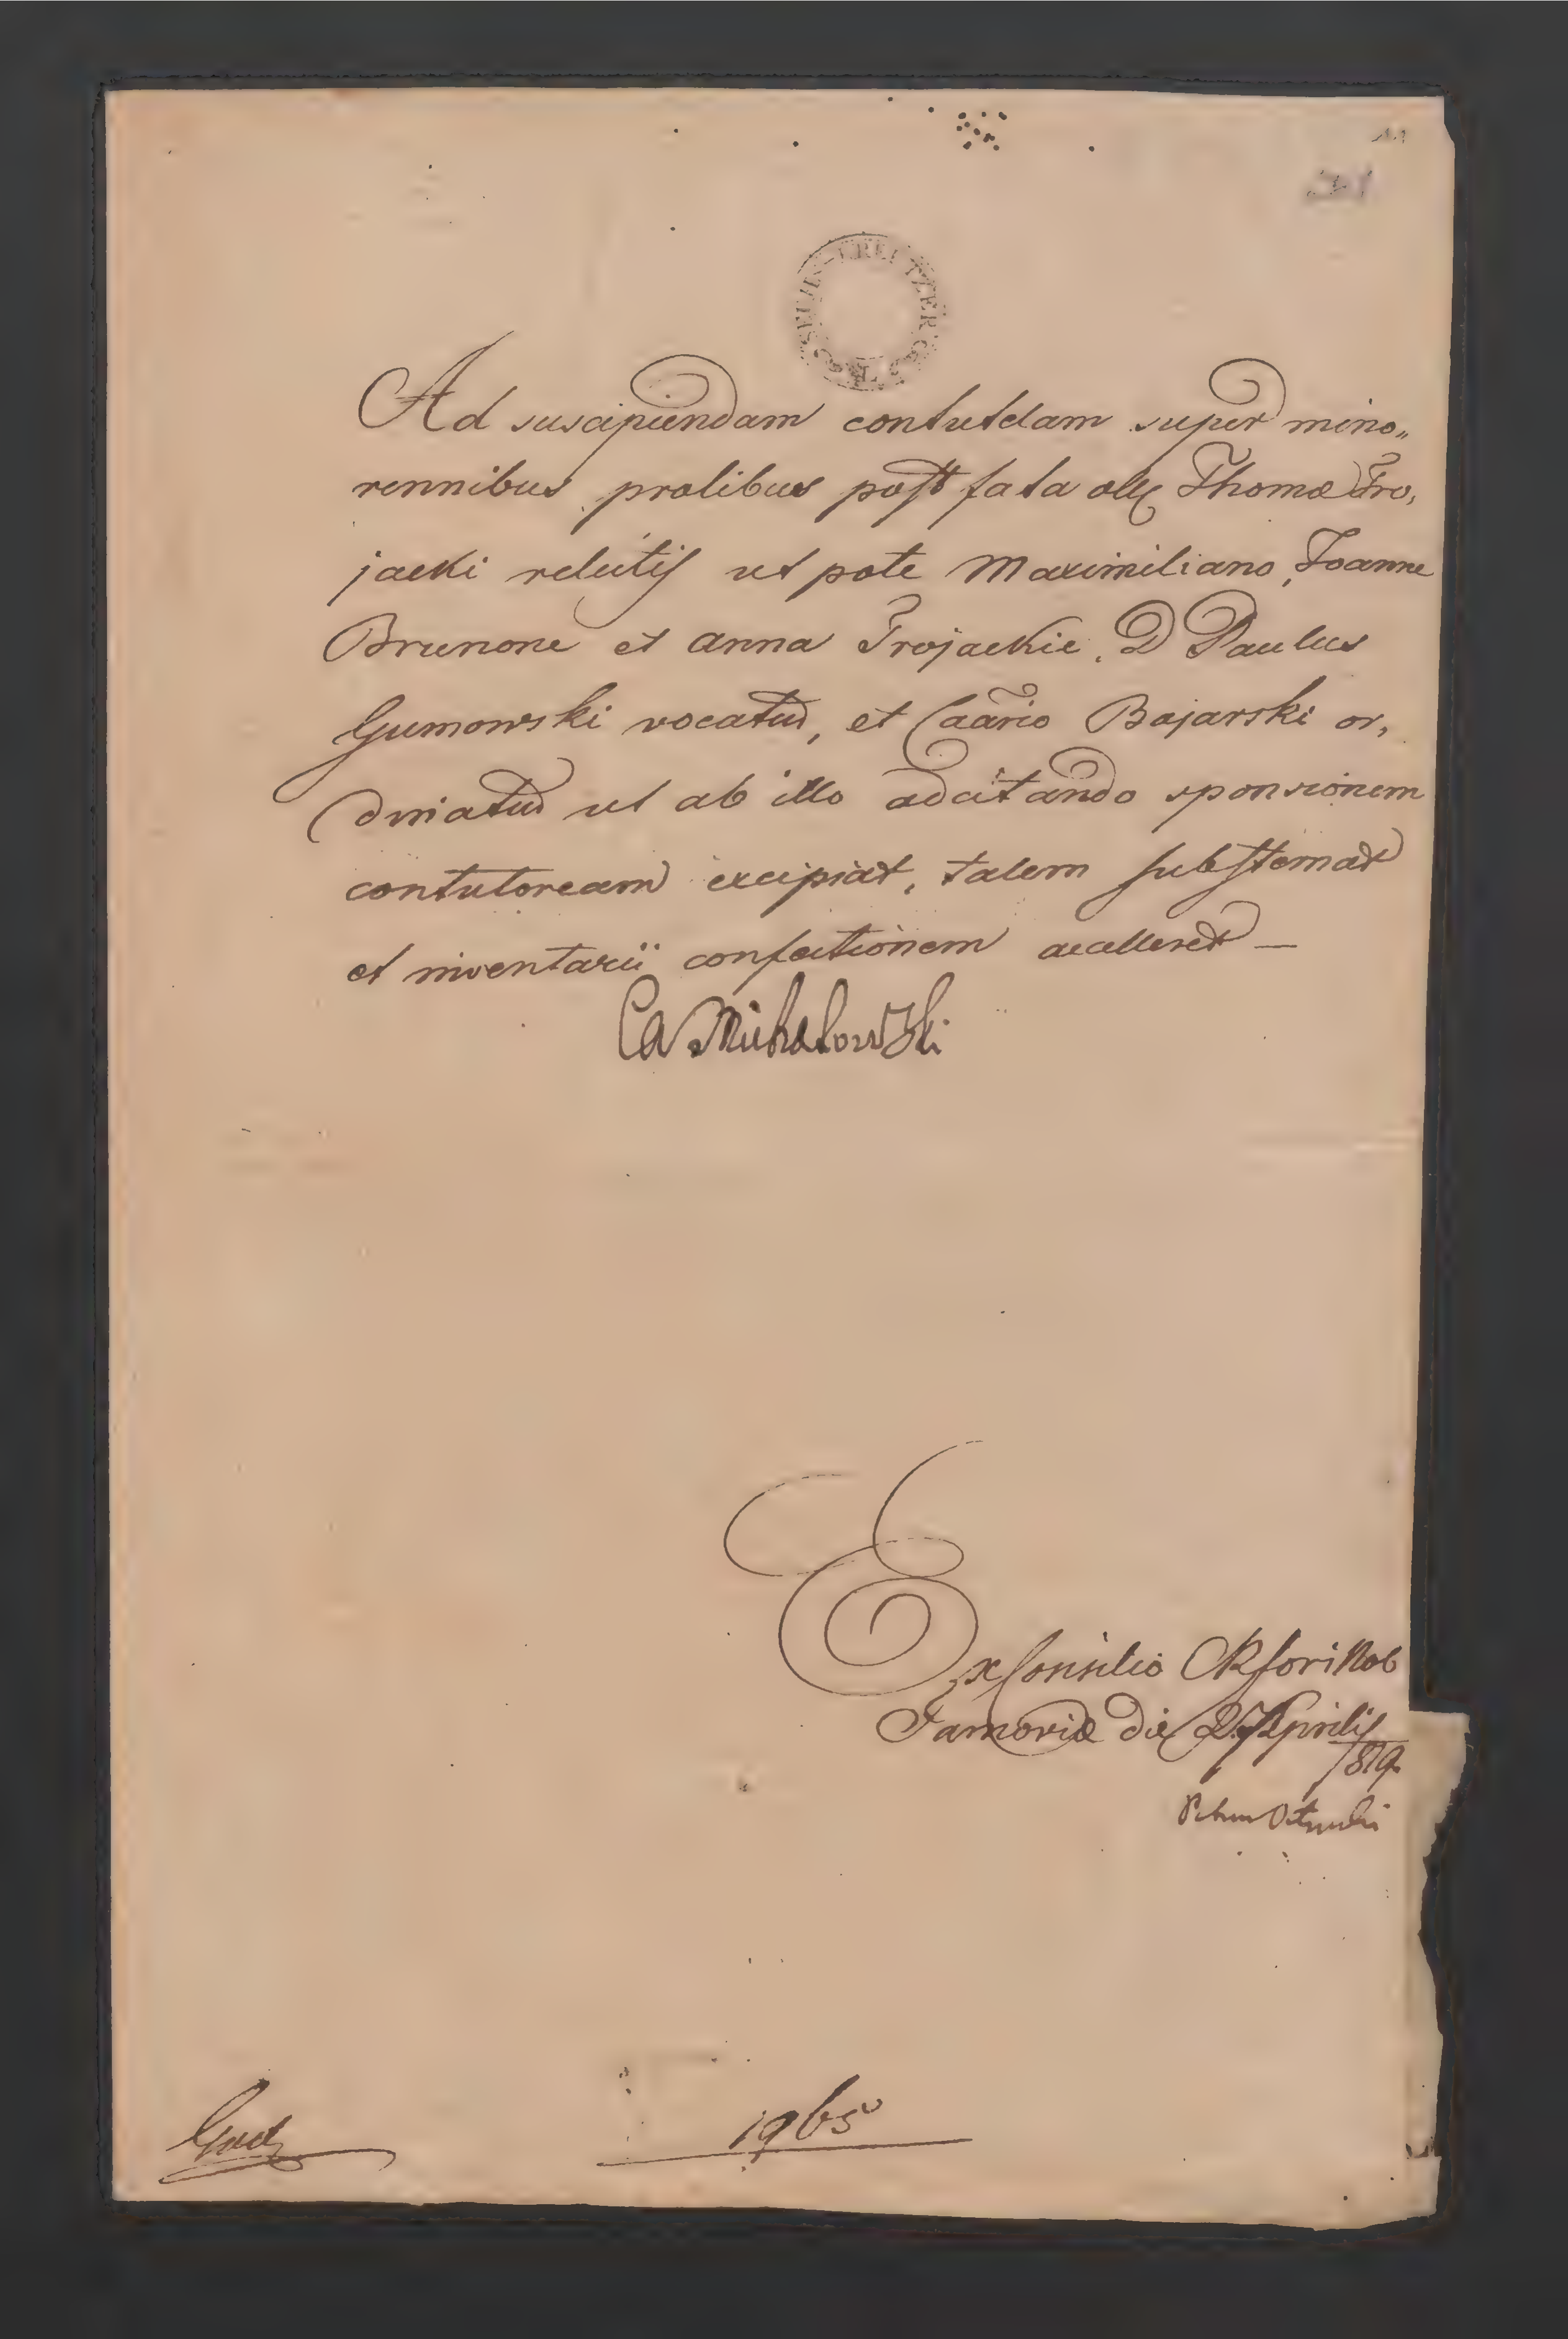 Ad suscipiendam contutelam super mino„
rennibus prolibus post fata olim Thomæ Tro,
jacki relictis ut pote Maximiliano, Joanne
Brunone et Anna Trojackie, D Paulus
Gumowski vocatus, et Caario Bojarski or,
dinatus ut ab illo adcitando sponsionem
contutoream excipiat, talem substernat
et inventarii confectionem accelleret —
Ca Michalowski
Ex Consilio CR fori Nob
Tarnoviæ die 27 Aprilis
1819.
1965